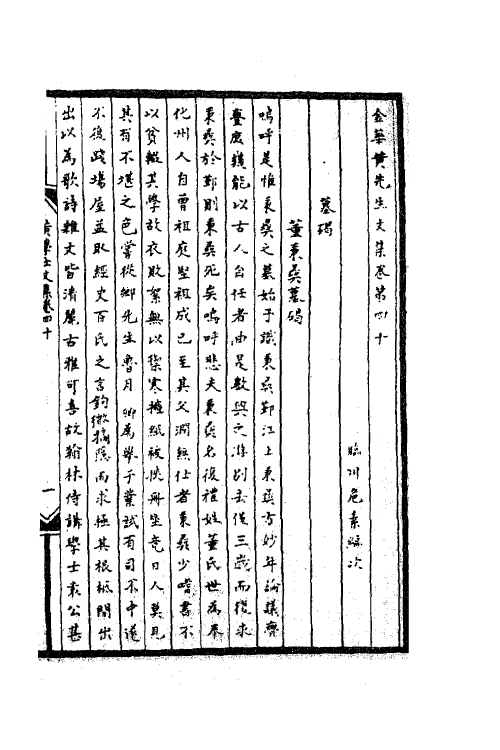 金華黃先生文集卷第四十
臨川危素編次
墓碣
董秉彝墓碣
嗚呼是惟秉彝之墓始予識秉彝鄞江上秉彝方妙年論議亹
亹底蘊能以古人自任者由是數與之游別去僅三歲而復求
秉彝於鄞則秉彝死矣嗚呼悲夫秉彝名復禮姓董氏世為奉
化州人自曾祖庭堅祖成已至其父潤無仕者秉彝少嗜書不
以貧輟其學故衣敗絮無以禦寒擁紙被挾冊坐竟日人莫見
其有不堪之色嘗從鄉先生魯月卿為舉子業試有司不中遂
不復踐場屋益取經史百氏之言鉤微擿隱而求極其根柢間出
出以為歌詩雜文皆清麗古雅可喜故翰林侍講學士袁公甚
黃學士文集卷四十
一